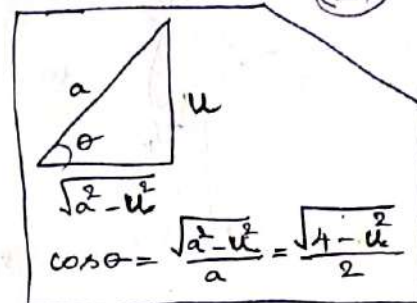 a
u
θ
√a²-u²
cosθ = √a²-u²/a = √4-u²/2